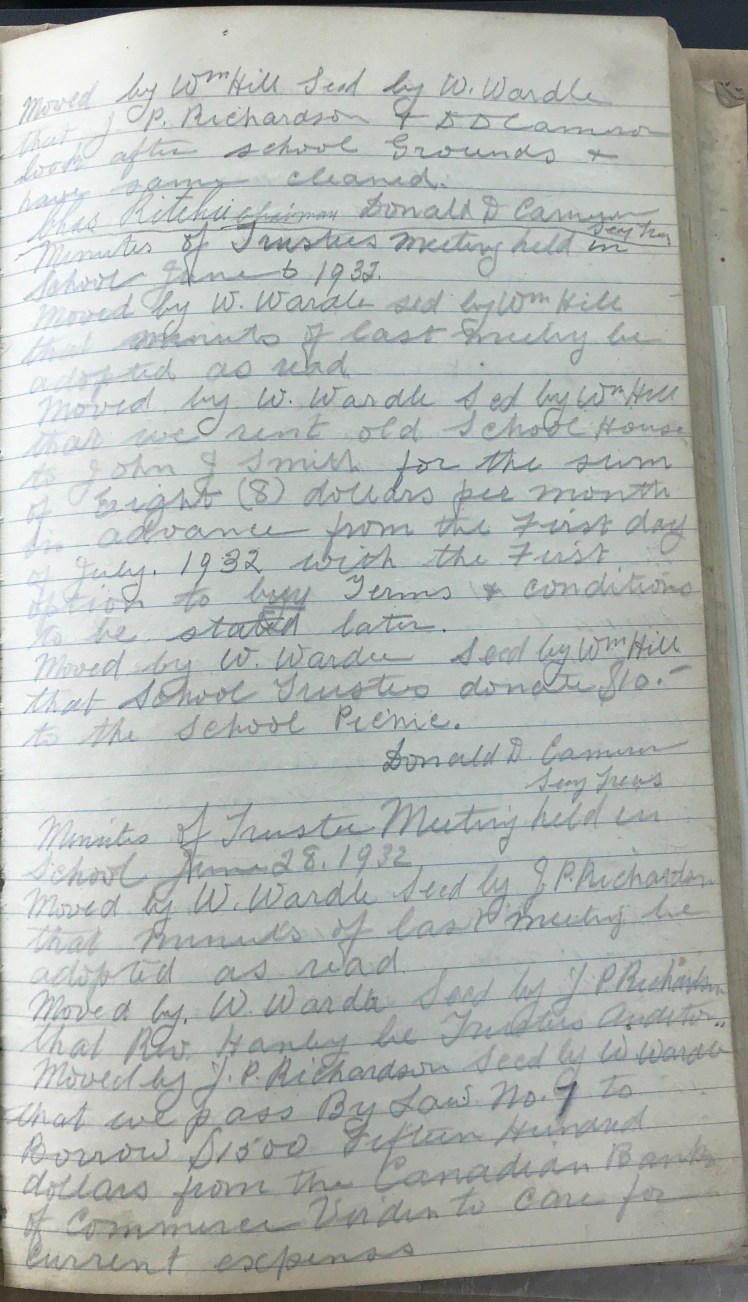 Moved by Wm Hill Secd by W. Wardle
that J. P. Richardson & D D Cameron
look after school Grounds &
have same cleaned.
Chas Ritchie Chairman Donald D Cameron
Secy Trea
Minutes of Trustees Meeting held in
School June 6 1932.
Moved by W. Wardle secd by Wm Hill
that minuts of last meetig be
adopted as read
Moved by W. Wardle Secd by Wm Hill
that we rent old School House
to John J Smith for the sum
of Eight (8) dollars per month
in advance from the First day
of July. 1932 with the First
option to buy Terms & conditions
to be stated later.
Moved by W. Wardle Secd by Wm Hill
that School Trustees donate $10.-
to the School Picnic.
Donald D. Cameron
Secy Treas
Minutes of Trustee Meeting held in
School June 28. 1932
Moved by W. Wardle Secd by J P. Richardson
that minuts of last meetig be
adopted as read.
Moved by. W. Wardle Secd by J P Richardson
that Rev. Hanly be Trustees Auditor
Moved by J. P. Richardson Secd by W Wardle
that we pass By Law No. 9 to
Borrow $1500 Fifteen Hundred
dollars from the Canadian Bank
of Commerce Virden to care for
current expenses